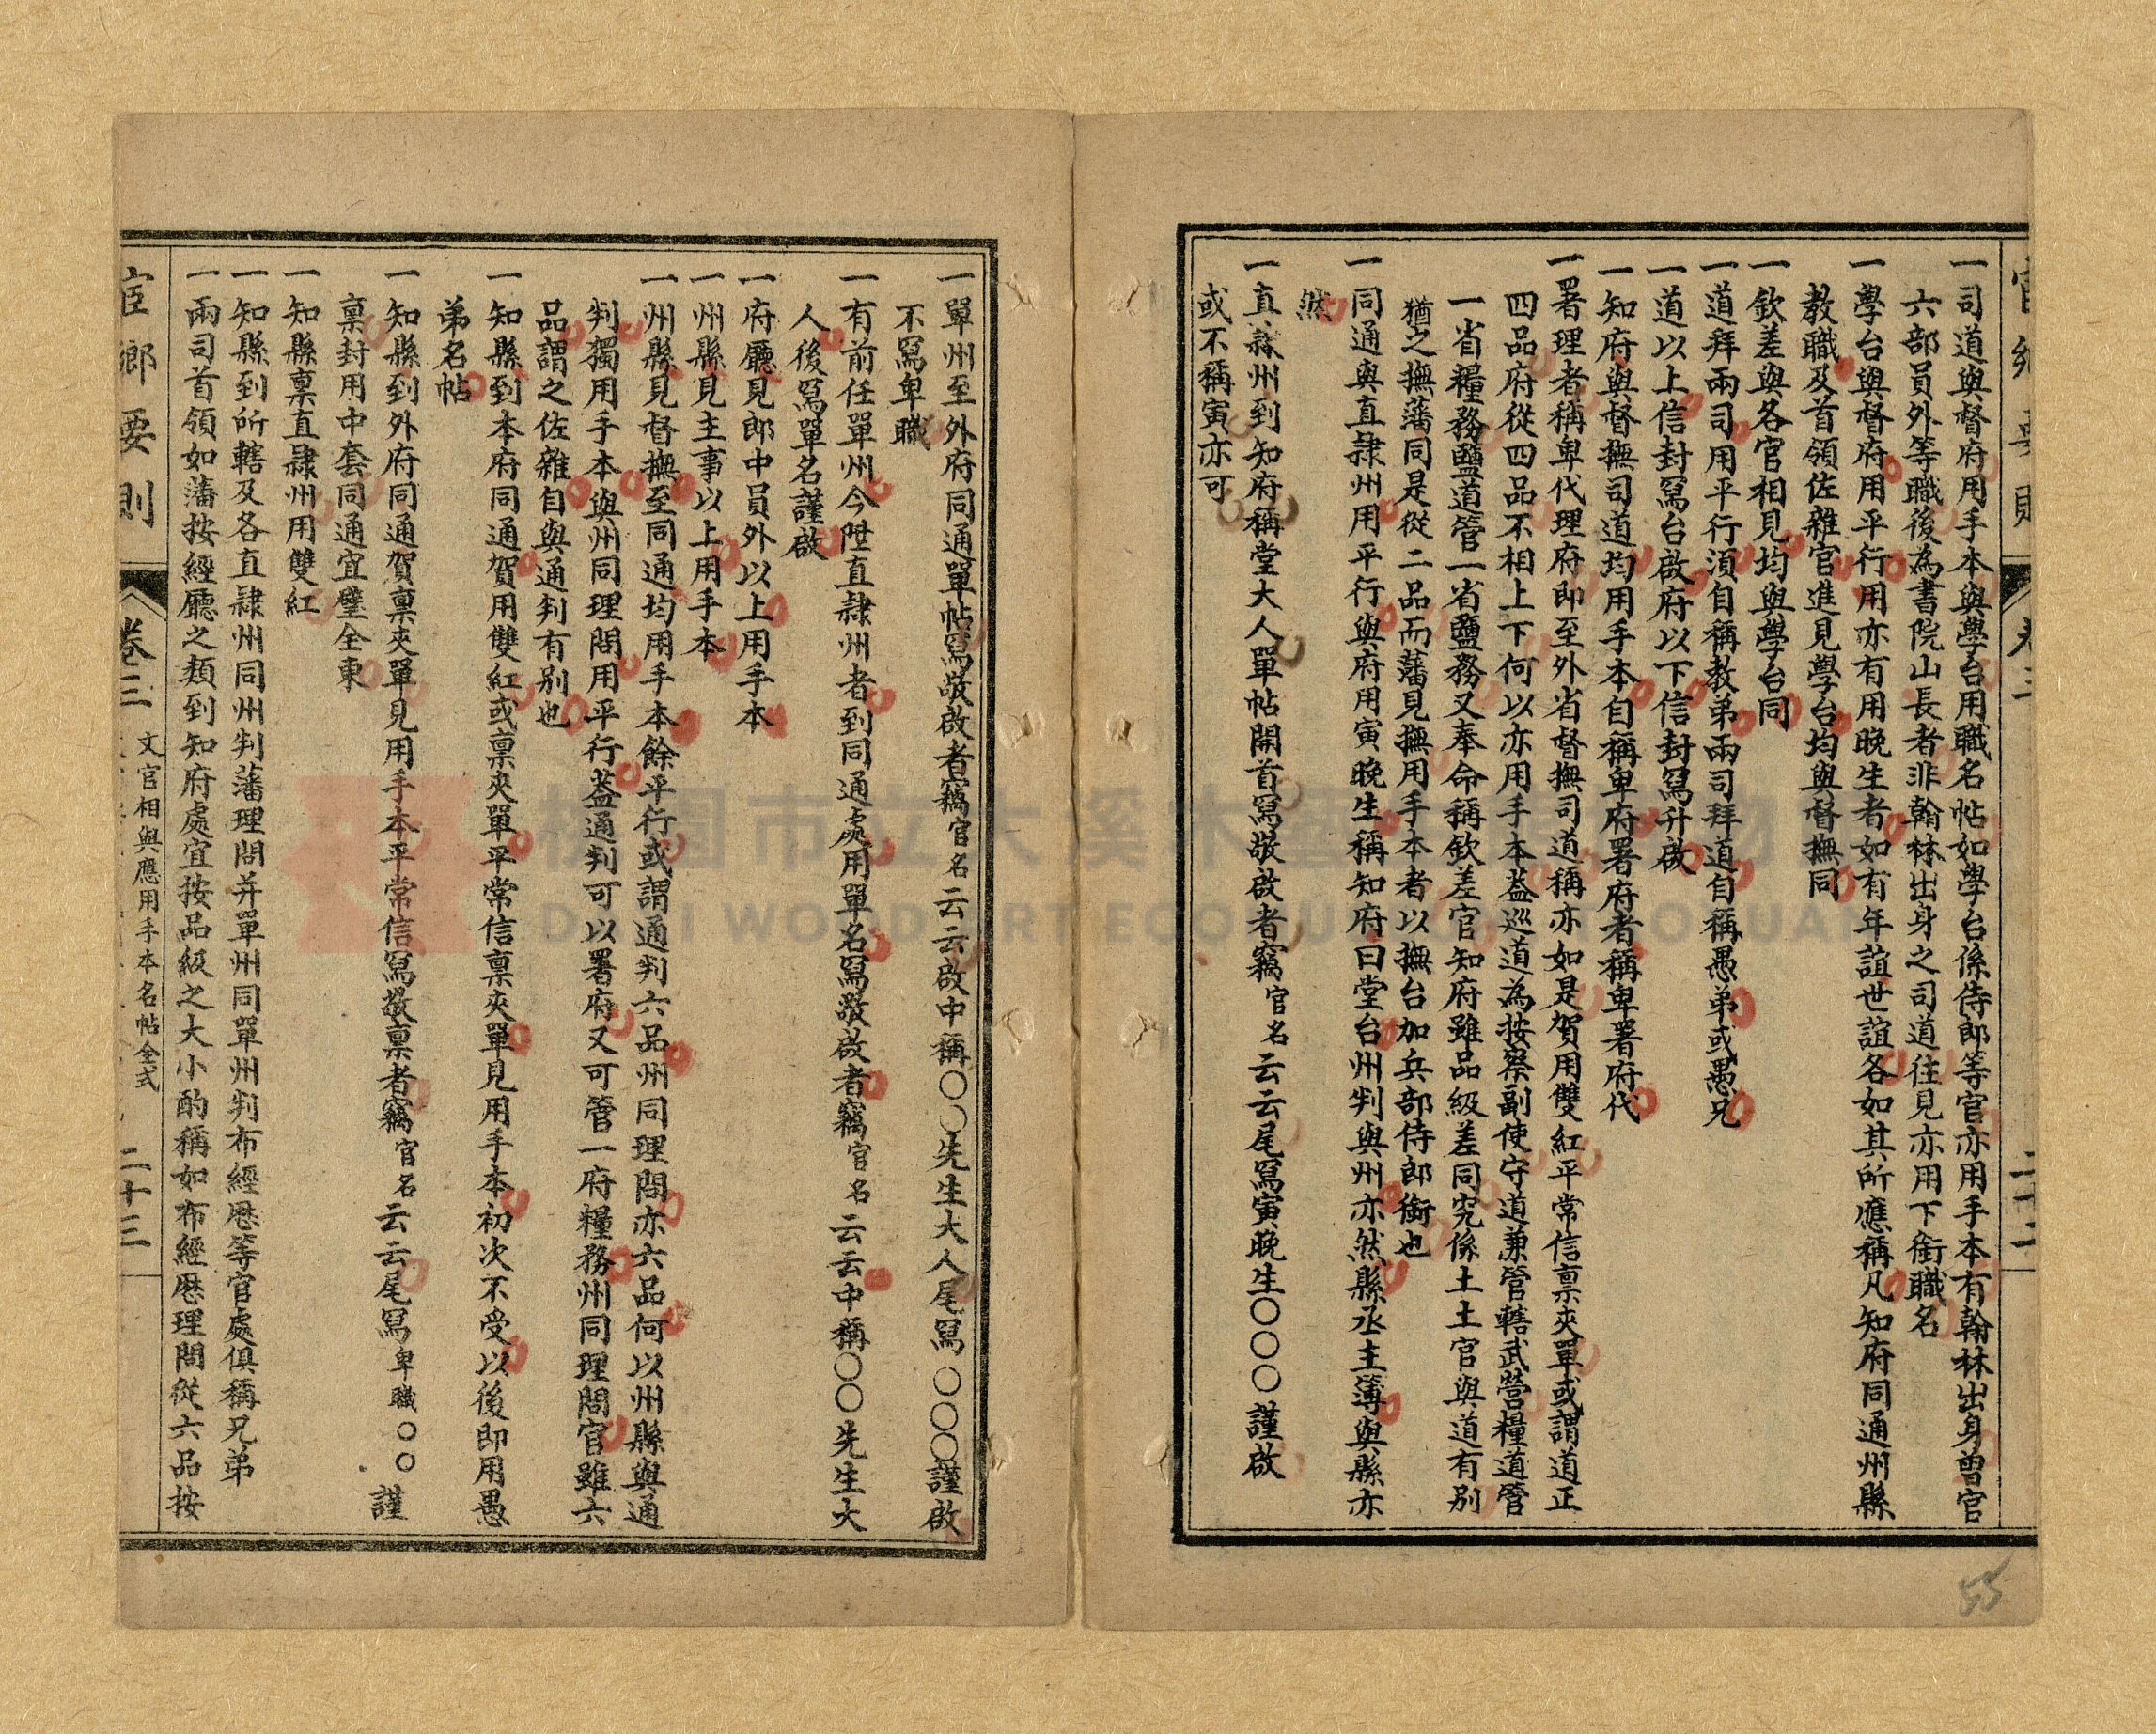 一司道與督府用手本與學台用職名帖如學台係侍郎等官亦用手本有翰林出身曾官
六部員外等職後為書院山長者非翰林出身之司道往見亦用下銜職名
一學台與督府用平行用亦有用晚生者如有年誼世誼各如其所應稱凡知府同通州縣
教職及首領佐雜官進見學台均與督撫同
一欽差與各官相見均與學台同
一道拜兩司用平行須自稱教弟兩司拜道自稱愚弟或愚兄
一道以上信封寫台啟府以下信封寫升啟
一知府與督撫司道均用手本自稱卑府署府者稱卑署府代
一署理者稱卑代理府即至外省督撫司道稱亦如是賀用雙紅平常信稟夾單或謂道正
四品府從四品不相上下何以亦用手本葢巡道為按察副使守道兼管轄武營糧道管
一省糧務鹽道管一省鹽務又奉命稱欽差官知府雖品級差同究係土土官與道有別
猶之撫藩同是從二品而藩見撫用手本者以撫台加兵部侍郎銜也
一同通與直隸州用平行與府用寅晚生稱知府曰堂台州判與州亦然縣丞主簿與縣亦
然
一直隸州到知府稱堂大人單帖開首寫敬啟者竊官名云云尾寫寅晚生〇〇〇謹啟
或不稱寅亦可
一單州至外府同通單帖寫敬啟者竊官名云云啟中稱〇〇先生大人尾寫〇〇〇謹啟
不寫卑職
一有前任單州今陞直隸州者到同通處用單名寫敬啟者竊官名云云中稱〇〇先生大
人後寫單名謹啟
一府廳見郎中員外以上用手本
一州縣見主事以上用手本
一州縣見督撫至同通均用手本餘平行或謂通判六品州同理問亦六品何以州縣與通
判獨用手本與州同理問用平行葢通判可以署府又可管一府糧務州同理問官雖六
品謂之佐雜自與通判有別也
一知縣到本府同通賀用雙紅或稟夾單平常信稟夾單見用手本初次不受以後即用愚
弟名帖
一知縣到外府同通賀稟夾單見用手本平常信寫敬稟者竊官名云云尾寫卑職〇〇謹
稟封用中套同通宜璧全柬
一知縣稟直隸州用雙紅
一知縣到所轄及各直隸州同州判藩理問并單州同單州判布經歷等官處俱稱兄弟
一兩司首領如藩按經廳之類到知府處宜按品級之大小酌稱如布經歷理問從六品按
宦鄉要則
卷三
文官相與應用手本名帖全式
二十三
55